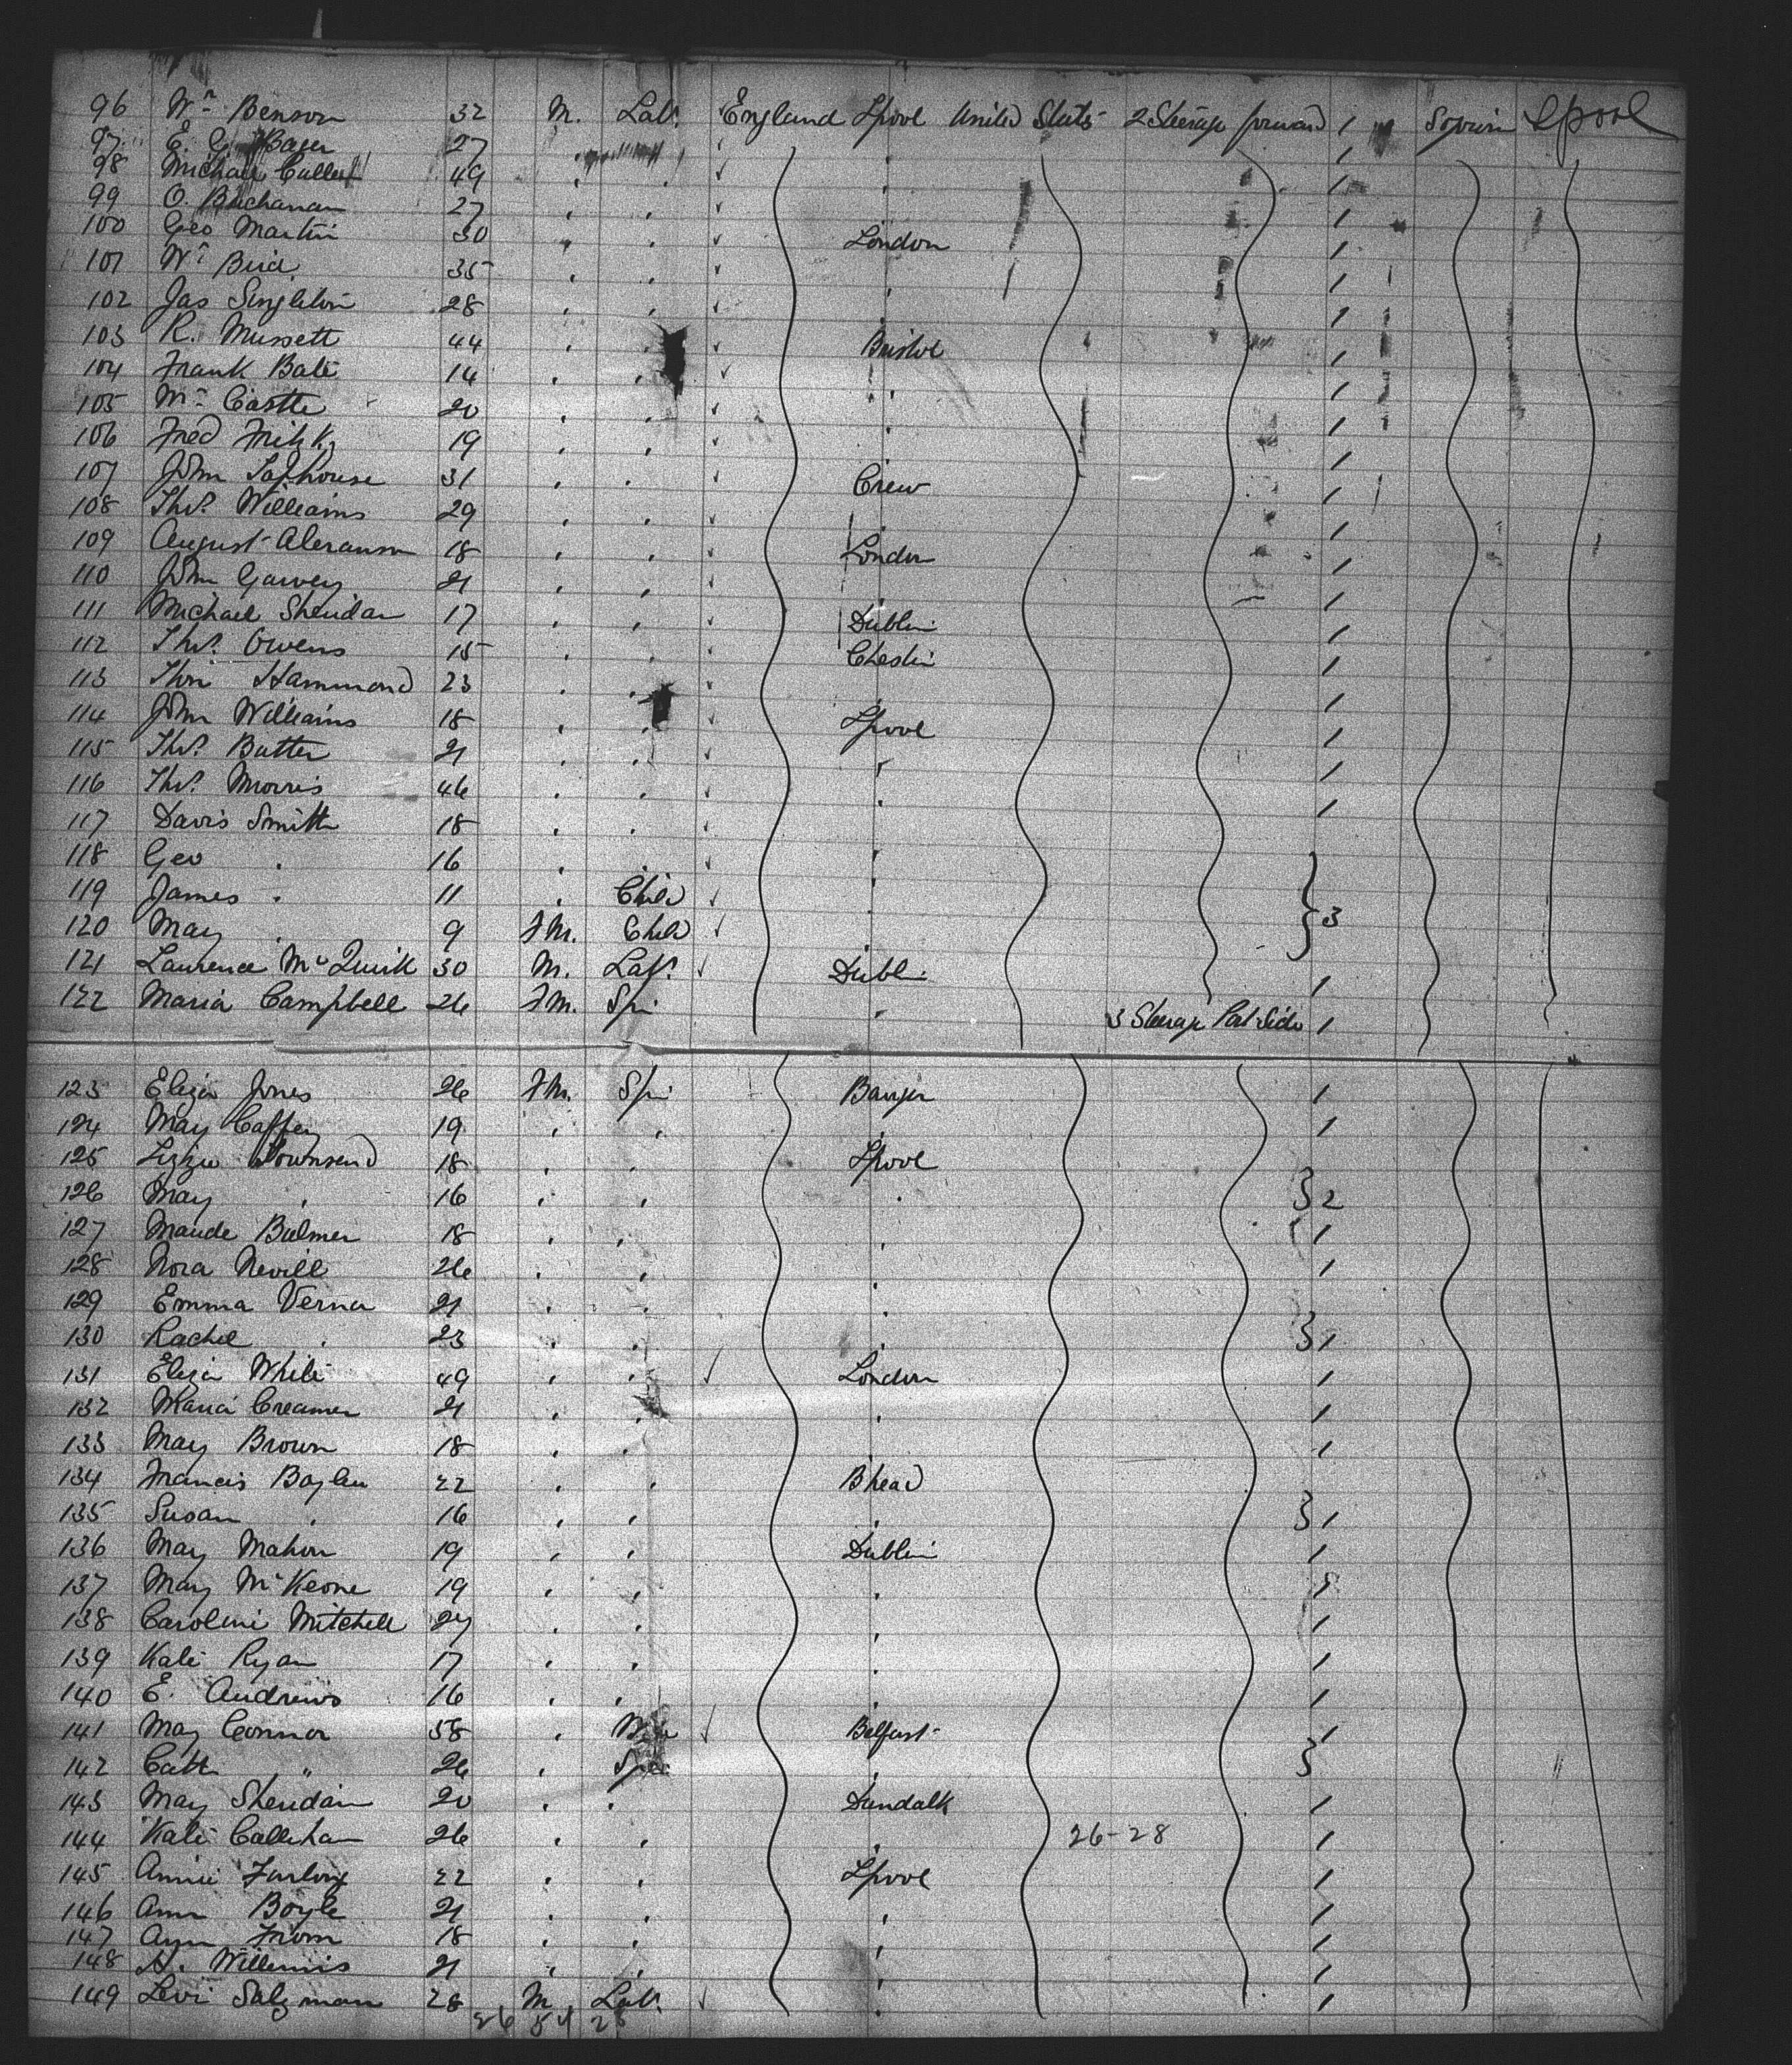 96 Wm Benson 32 M. Labr England Lpool United States 2 Steerage forward 1 Sojourn Lpool
97 E. G. 27 1
98 Michael Cullen 49 1
99 O. Buchanan 27 1
100 Geo Martin 30 London 1
101 Wm Bird 35 1
102 Jas Singleton 28 1
103 R. Mussett 44 Bristol 1
104 Frank Bate 14 1
105 Castle 20 1
106 Fred 19 1
107 John Taphouse 31 Crew 1
108 Thos. Williams 29 1
109 August 18 London 1
110 John Garvey 21 1
111 Michael Sheridan 17 Dublin 1
112 Thos. Owens 15 Chester 1
113 Hammond 23 1
114 John Williams 18 Lpool 1
115 Thos. Butter 21 1
116 Thos. Morris 46 1
117 Davis Smith 18
118 Geo " 16
119 James " 11 Child
120 May " 9 FM. Child } 3
121 Laurence McQuirk 30 M. Labr Dublin 1
122 Maria Campbell 26 FM. Spi " 3 Steerage Port Side 1
123 Eliza Jones 26 FM. Spi Bangor 1
124 May Caffey 19 " " " 1
125 Lizzie Townsend 18 " " Lpool
126 May " 16 " " " } 2
127 Maude Bulmer 18 " " " 1
128 Nora Nevill 26 " " " 1
129 Emma Verner 21 " " "
130 Rachel " 23 " " " } 1
131 Eliza White 49 " " London 1
132 Maria Creamer 21 " " " 1
133 May Brown 18 " " " 1
134 Francis Boylan 22 " " Bhead
135 Susan " 16 " " " } 1
136 May Mahon 19 " " Dublin 1
137 May McKeone 19 " " "
138 Caroline Mitchell 27 " " " 1
139 Kate Ryan 17 " " " 1
140 E. Andrews 16 " " " 1
141 May Connor 58 " Belfast 1
142 Cath " 26 " " }
143 May Sheridan 20 " " Dundalk 1
144 Kate Callehan 26 " " " 26-28 1
145 Annie Furlong 22 " " Lpool 1
146 Ann Boyle 21 " " " 1
147 18 " " " 1
148 H. Willemis 21 " " " 1
149 Levi Salzman 28 M Labr " 1
26 54 25